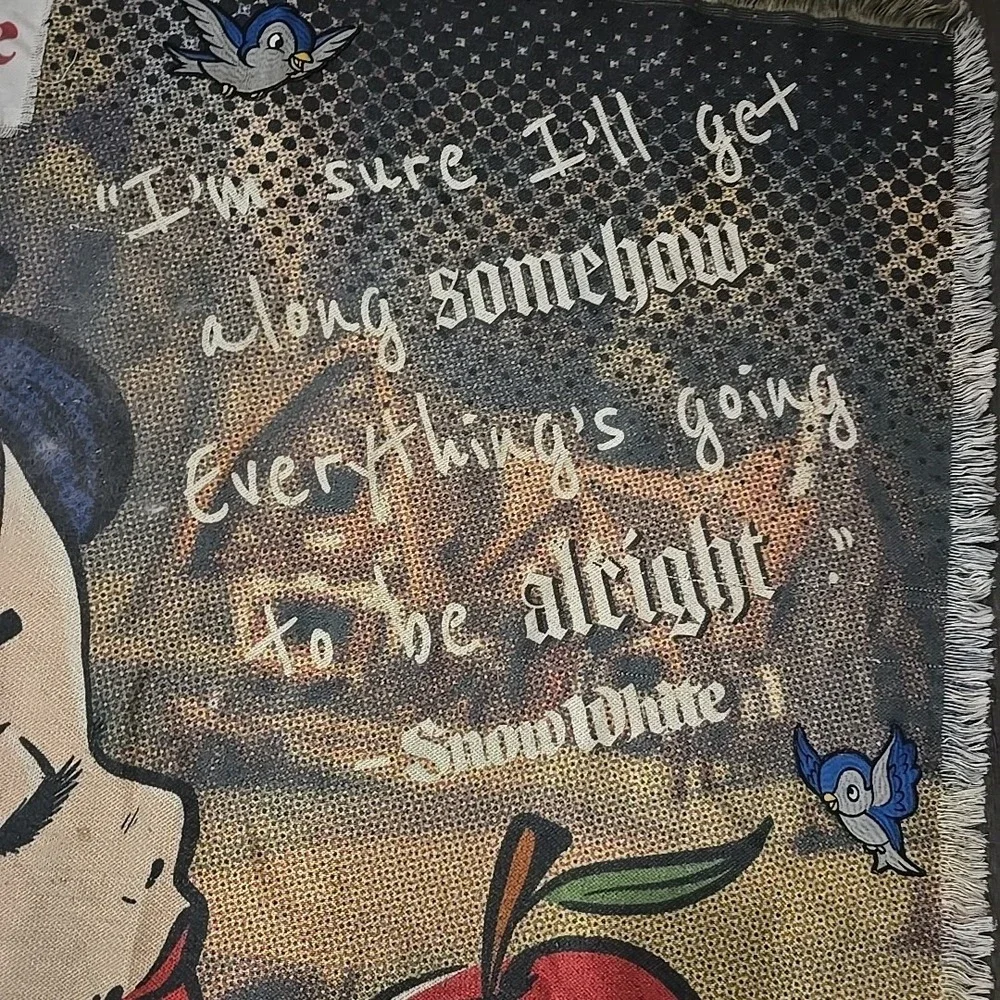 "I'm sure I'll get
along somehow.
Everything's going
to be alright."
- Snow White